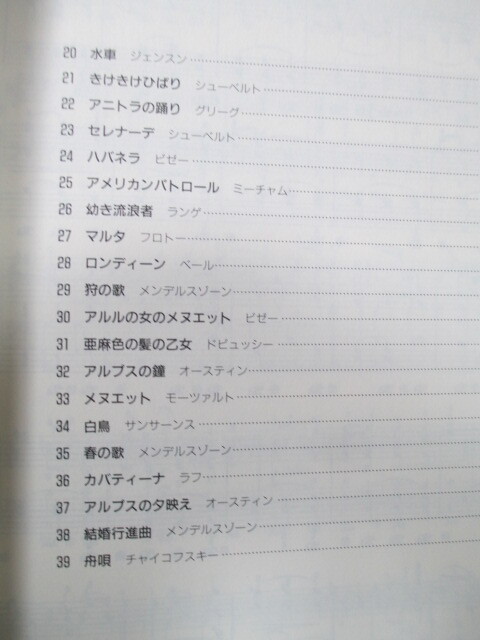 20 水車 ジェンスン
21 きけきけひばり シューベルト
22 アニトラの踊り グリーグ
23 セレナーデ シューベルト
24 ハバネラ ビゼー
25 アメリカンパトロール ミーチャム
26 幼き流浪者 ランゲ
27 マルタ フロトー
28 ロンディーン ベール
29 狩の歌 メンデルスゾーン
30 アルルの女のメヌエット ビゼー
31 亜麻色の髪の乙女 ドビュッシー
32 アルプスの鐘 オースティン
33 メヌエット モーツァルト
34 白鳥 サンサーンス
35 春の歌 メンデルスゾーン
36 カバティーナ ラフ
37 アルプスの夕映え オースティン
38 結婚行進曲 メンデルスゾーン
39 舟唄 チャイコフスキー